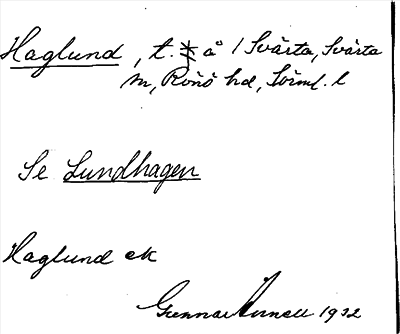 Haglund, t. å / Svärta, Svärta
sn, Rönö hd, Sörml. l
Se Lundhagen
Haglund ek
Gunnar Annell 1932